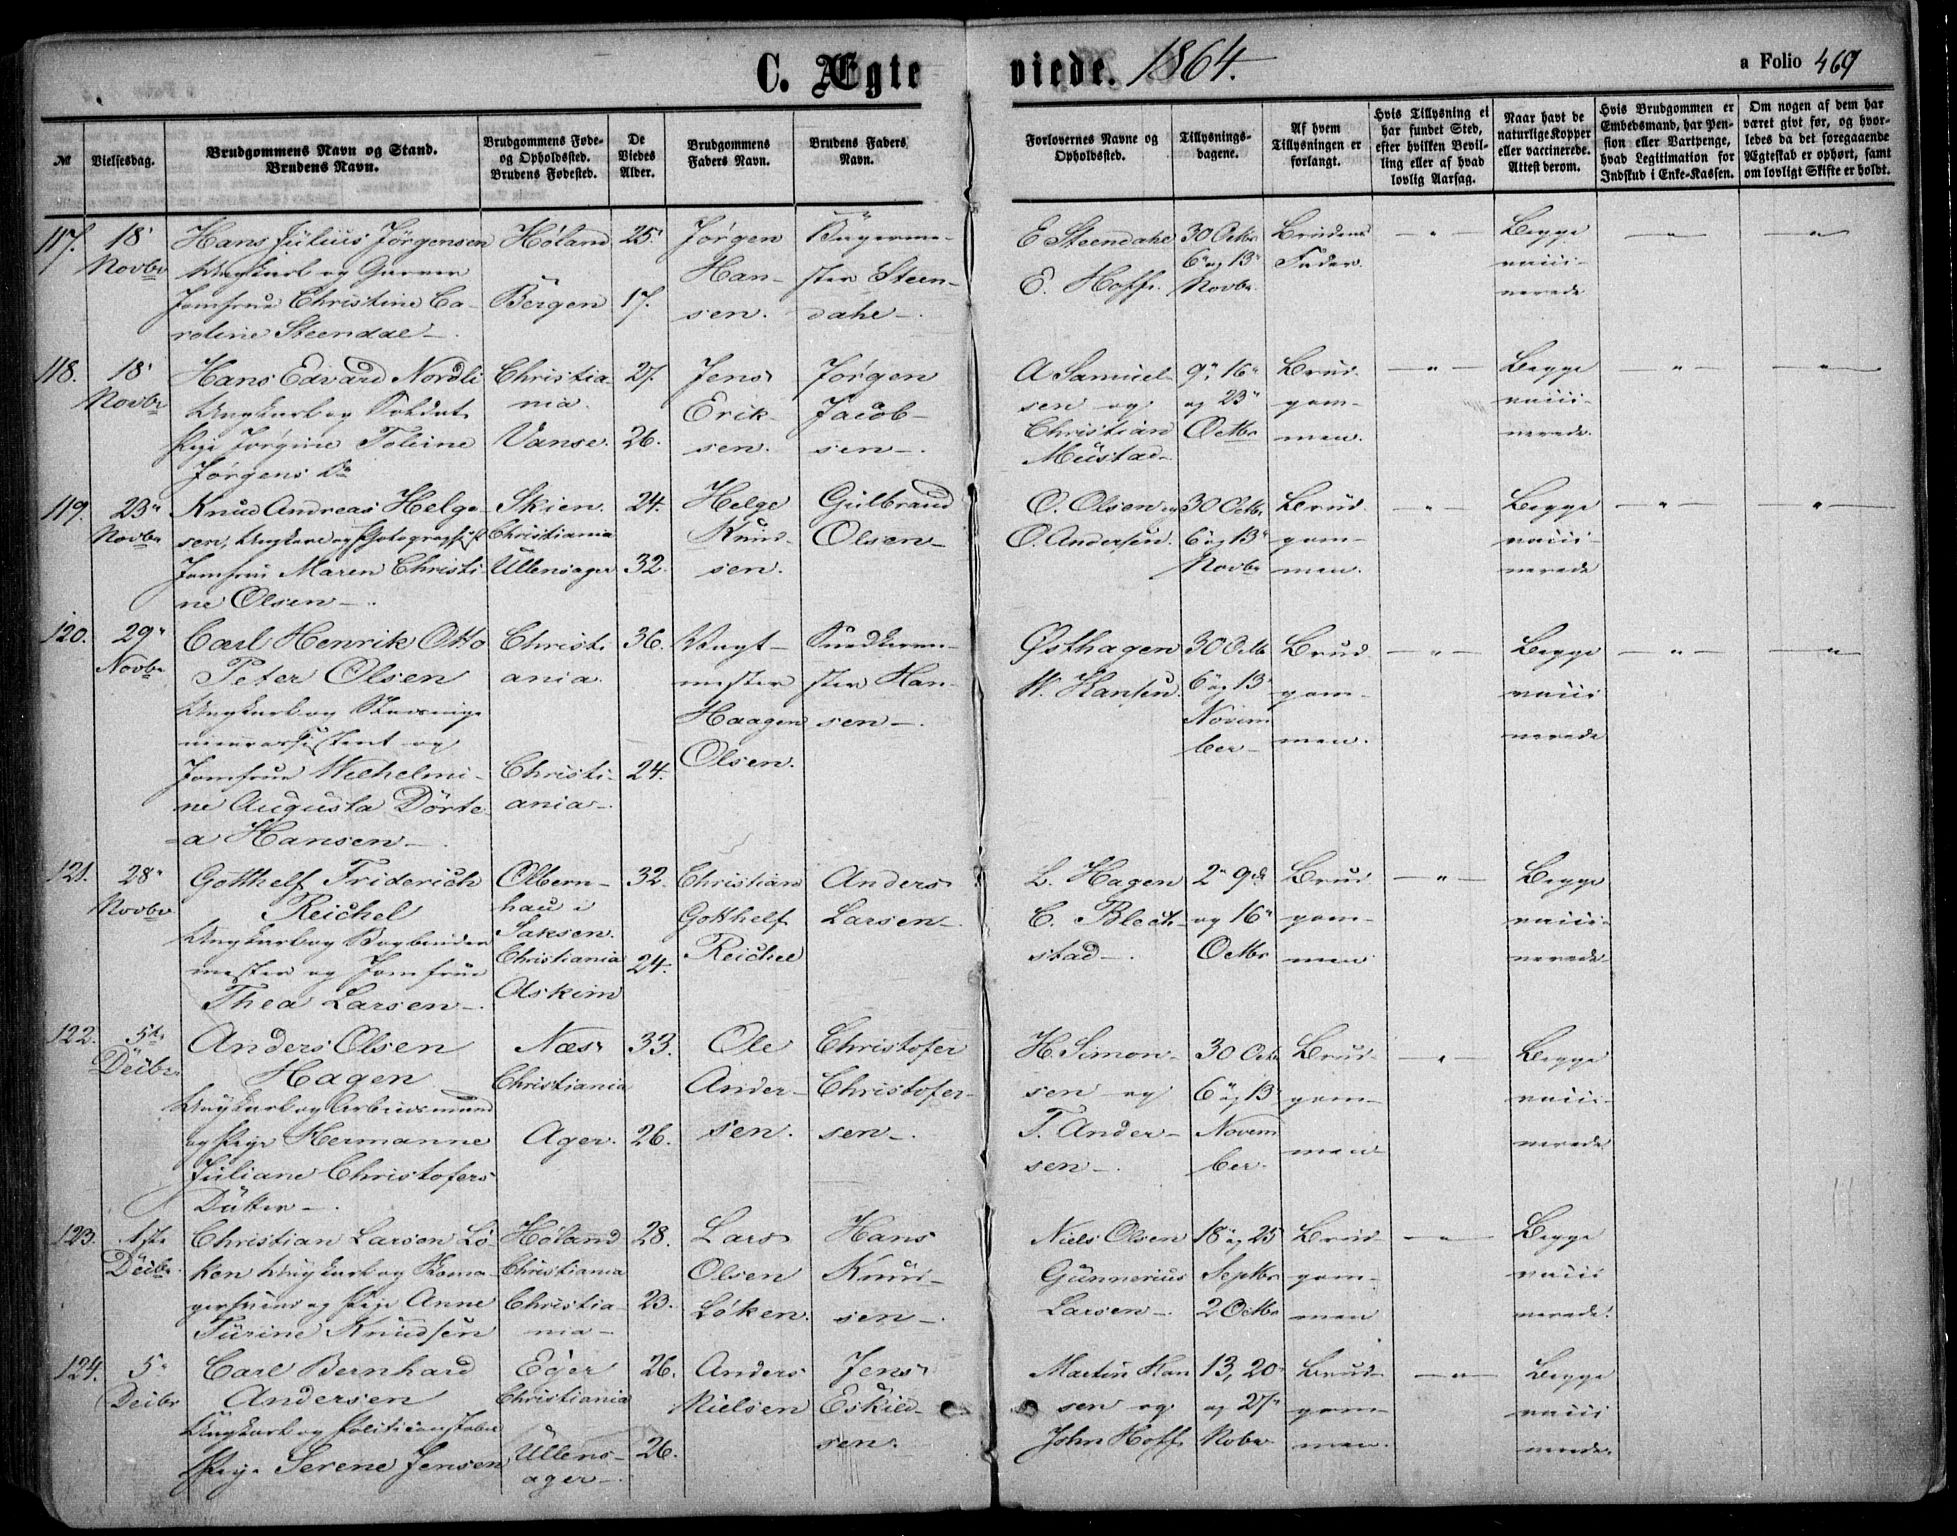 C. Ægte viede. 1864.
a Folio 469
№
Vielsesdag.
Brudgommens Navn og Stand.
Brudens Navn.
Brudgommens Føde-
og Opholdssted.
Brudens Fødested.
De
Viedes
Alder.
Brudgommens
Faders Navn.
Brudens Faders
Navn.
Forlovernes Navne og
Opholdssted.
Tillysnings-
dagene.
Af hvem
Tillysningen er
forlangt.
Hvis Tillysning ei
har fundet Sted,
efter hvilken Bevil-
ling eller af hvad
lovlig Aarsag.
Naar havt de
naturlige Kopper
eller vaccinerede.
Attest derom.
Hvis Brudgommen er
Embedsmand, har Pen-
sion eller Vartpenge,
hvad Legitimation for
Indskud i Enke-Kassen.
Om nogen af dem har
været givt før, og hvor-
ledes da det foregaaende
Ægteskab er ophørt, samt
om lovligt Skifte er holdt.
117.
18
Novbr
Hans Julius Jørgensen
Ungkarl og
Jomfrue Christine Ca-
roline Steendal
Høland
Bergen
25
17.
Jørgen
Han-
sen.
Steen-
dahl
E Steendahl
E. Hoff.
30 Octbr
6 og 13
Novbr.
Brudens
Fader
Begge
vacci-
nerede
118.
18
Novbr
Hans Edvard Nordli
Ungkarl og Soldat
Pige Jørgine Toline
Jørgens Dr
Christia
nia.
Vanse.
27.
26.
Jens
Erik-
sen.
Jørgen
Jacob-
sen
A Samuel-
sen og
Christian
Mustad
9, 16
og 23
Octbr
Brud
gom-
men.
Begge
vacci-
nerede.
119.
23
Novbr
Knud Andreas Helge-
sen, Ungkarl og Photographist
Jomfrue Maren Christi
ne Olsen
Skien.
Christiania
Ullensager
24.
32.
Helge
Knud-
sen.
Gulbrand
Olsen
O. Olsen og
O. Andersen.
30 Octbr
6 og 13
Novbr
Brud
gom-
men.
Begge
vacci-
nerede
120.
29
Novbr
Carl Henrik Otto
Peter Olsen
Ungkarl og
og
Jomfrue Wilhelmi-
ne Augusta Dorte-
a Hansen
Christi
ania.
Christi-
ania
36.
24.
Vagt-
mester
Haagen
Olsen.
Han-
sen
Østhagen
W. Hansen.
30 Octb
6 og 13
Novem
ber
Brud
gom-
men.
Begge
vacci
nerede
121.
28
Novbr
Gotthelf Friderich
Reichel
Ungkarl og Bogbinder
mester og Jomfrue
Thea Larsen
Olbern-
hau i
Saksen.
Christiania
Askim
32.
24.
Christian
Gotthelf
Reichel
Anders
Larsen
L. Hagen
C. Bleck-
stad
2 9de
og 16
Octbr
Brud
gom-
men
Begge
vacci-
nerede
122.
5te
Decbr.
Anders Olsen
Hagen
Ungkarl og Arbeidsmand
og Pige Hermanne
Juliane Christofers
Datter
Næs
Christiania
Ager.
33.
26.
Ole
Ander-
sen.
Christofer
Christofer-
sen
H. Simon-
sen og
T. Ander-
sen
30 Octr
6 og 13
Novem
ber.
Brud-
gom-
men
Begge
vacci-
nerede
123.
Decbr.
Christian Larsen Lø-
ken Ungkarl og
og Pige Anne
Turine Knudsen
Høland
Christiania
Christia-
nia
28.
23.
Lars
Olsen
Løken.
Hans
Knud-
sen
Niels Olsen
Gunnerius
Larsen
18 og 25
Septbr
2 Octbr
Brud-
gom-
men
Begge
vacci
nerede.
124.
5
Decbr
Carl Bernhard
Andersen
Ungkarl og Politiconstabel
Pige Serene Jensen
Eger
Christiania
Ullens-
ager
26.
26.
Anders
Nielsen
Jens
Eskild-
sen.
Martin Han
sen og
John Hoff.
13, 20
og 27
Nobr
Brud-
gom-
men.
Begge
vacci
nerede